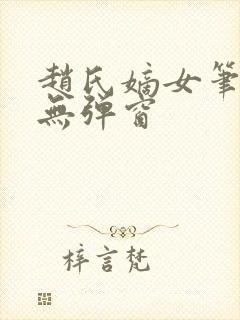 趙氏嫡女筆
無彈窗
梓言梵